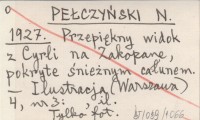 PEŁCZYŃSKI N.
1927. Przepiękny widok
z Cyrli na Zakopane,
pokryte śnieżnym całunem.
– Ilustracja (Warszawa)
4, nr 3: , il.
Tylko fot.